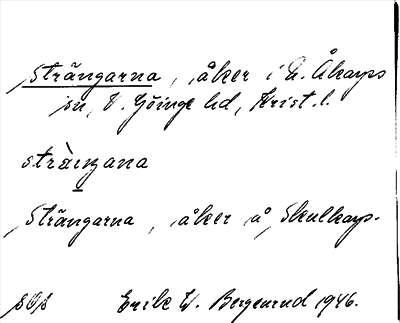 Strängarna, åker i N. Åkarps
sn, V. Göinge hd, Krist. l.
stràŋana
Strängarna, åker å Skulkarp.
Erik W. Bergenrud 1946.